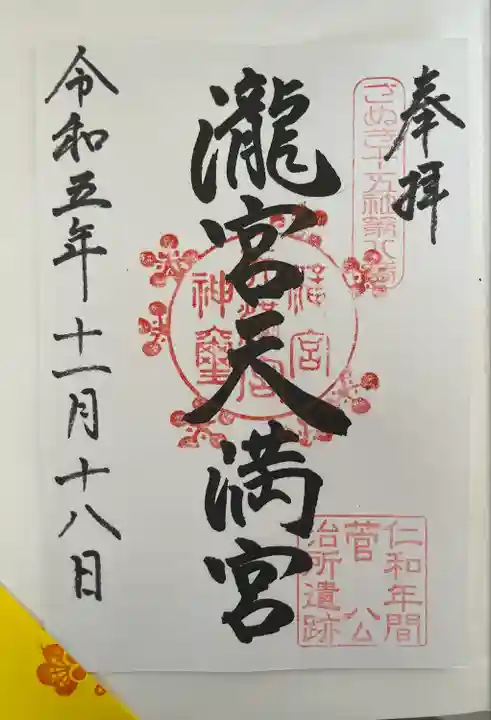 奉拝
さぬき十五社第八番
瀧宮天満宮
神璽
仁和年間
菅公
治所遺跡
令和五年十一月十八日